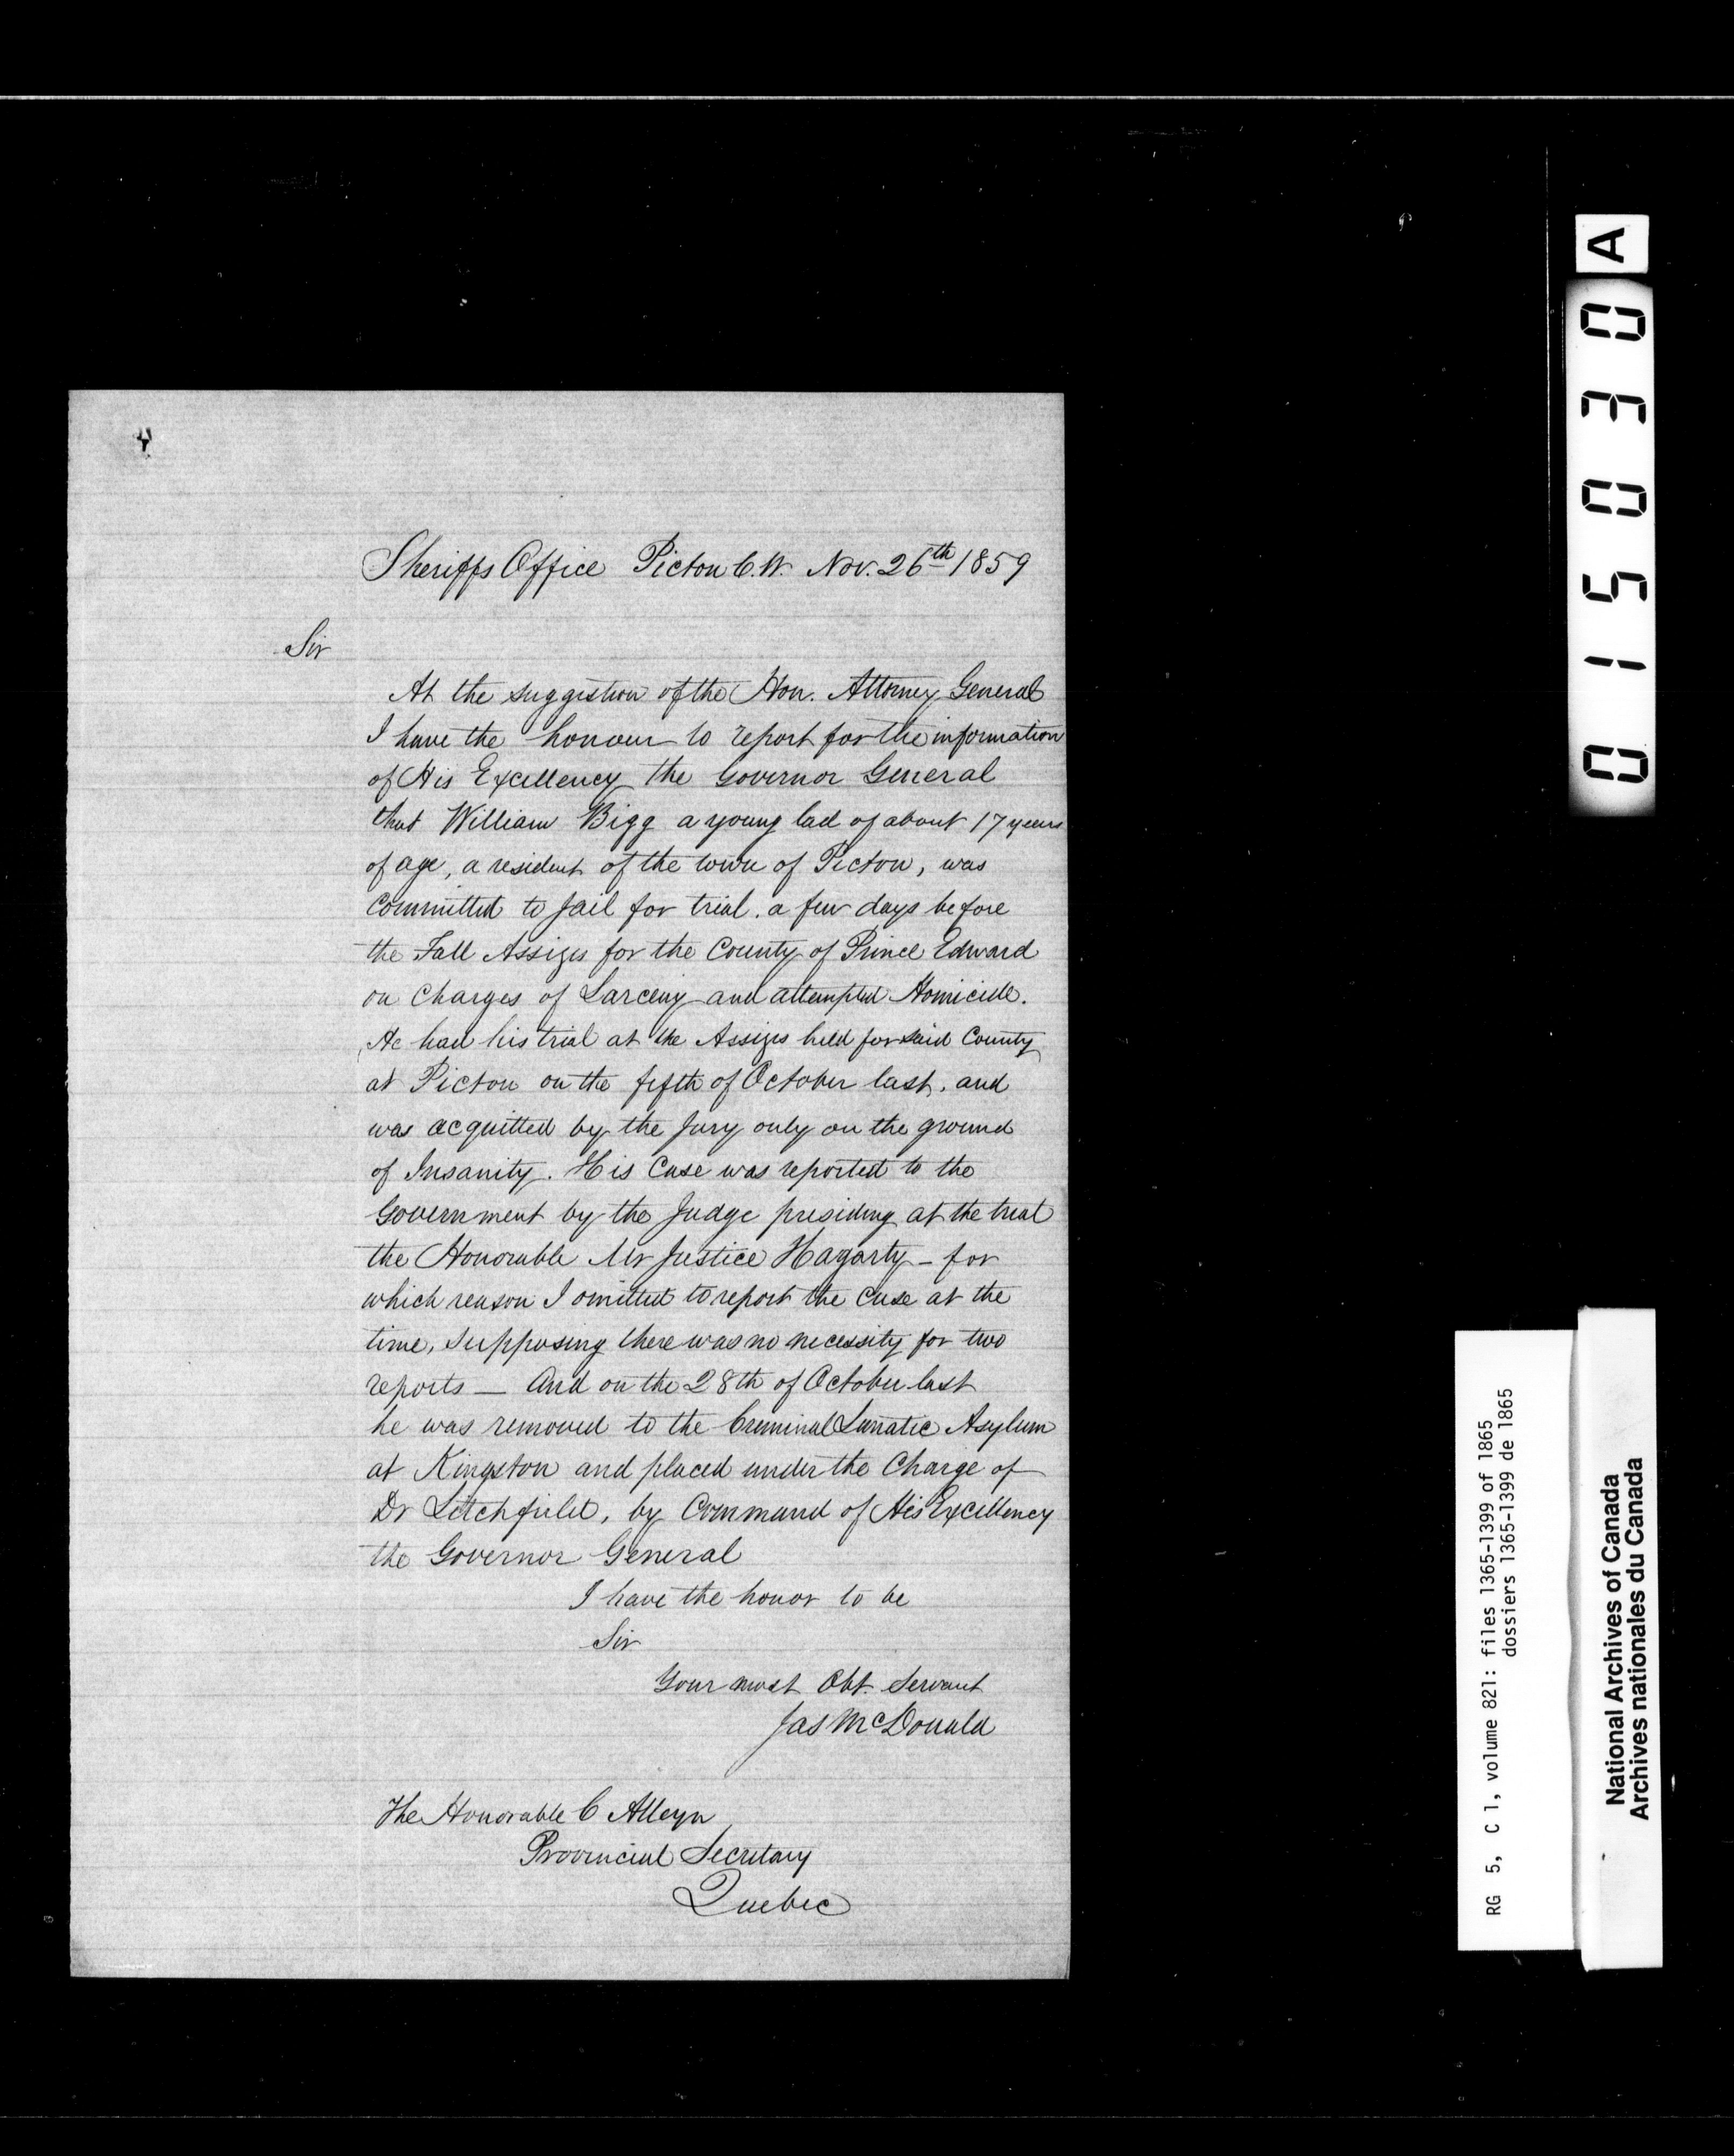 4
Sheriffs Office Picton C.W. Nov. 26th 1859
Sir
At the suggestion of the Hon. Attorney General
I have the honour to report for the information
of His Excellency the Governor General
that William Bigg a young lad of about 17 years
of age, a resident of the town of Picton, was
committed to Jail for trial. a few days before
the Fall Assizes for the County of Prince Edward
on Charges of Larceny and attempted Homicide.
He had his trial at the Assizes held for said County
at Picton on the fifth of October last, and
was acquitted by the Jury only on the ground
of Insanity. His Case was reported to the
Government by the Judge presiding at the trial
the Honorable Mr Justice Hagarty – for
which reason I omitted to report the Case at the
time, supposing there was no necessity for two
reports — And on the 28th of October last
he was removed to the Criminal Lunatic Asylum
at Kingston and placed under the Charge of
Dr Litchfield, by Command of His Excellency
the Governor General
I have the honor to be
Sir
Your most Obt. Servant
Jas McDonald
The Honorable C Alleyn
Provincial Secretary
Quebec
015030 A
RG 5, C 1, volume 821: files 1365-1399 of 1865
dossiers 1365-1399 de 1865
National Archives of Canada
Archives nationales du Canada